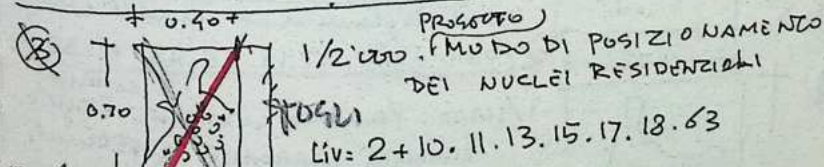 0.40
PROGETTO
3 1/2'000. (MODO DI POSIZIONAMENTO
DEI NUCLEI RESIDENZIALI
0.70
TOGLI
Liv: 2 + 10. 11. 13. 15. 17. 18. 63